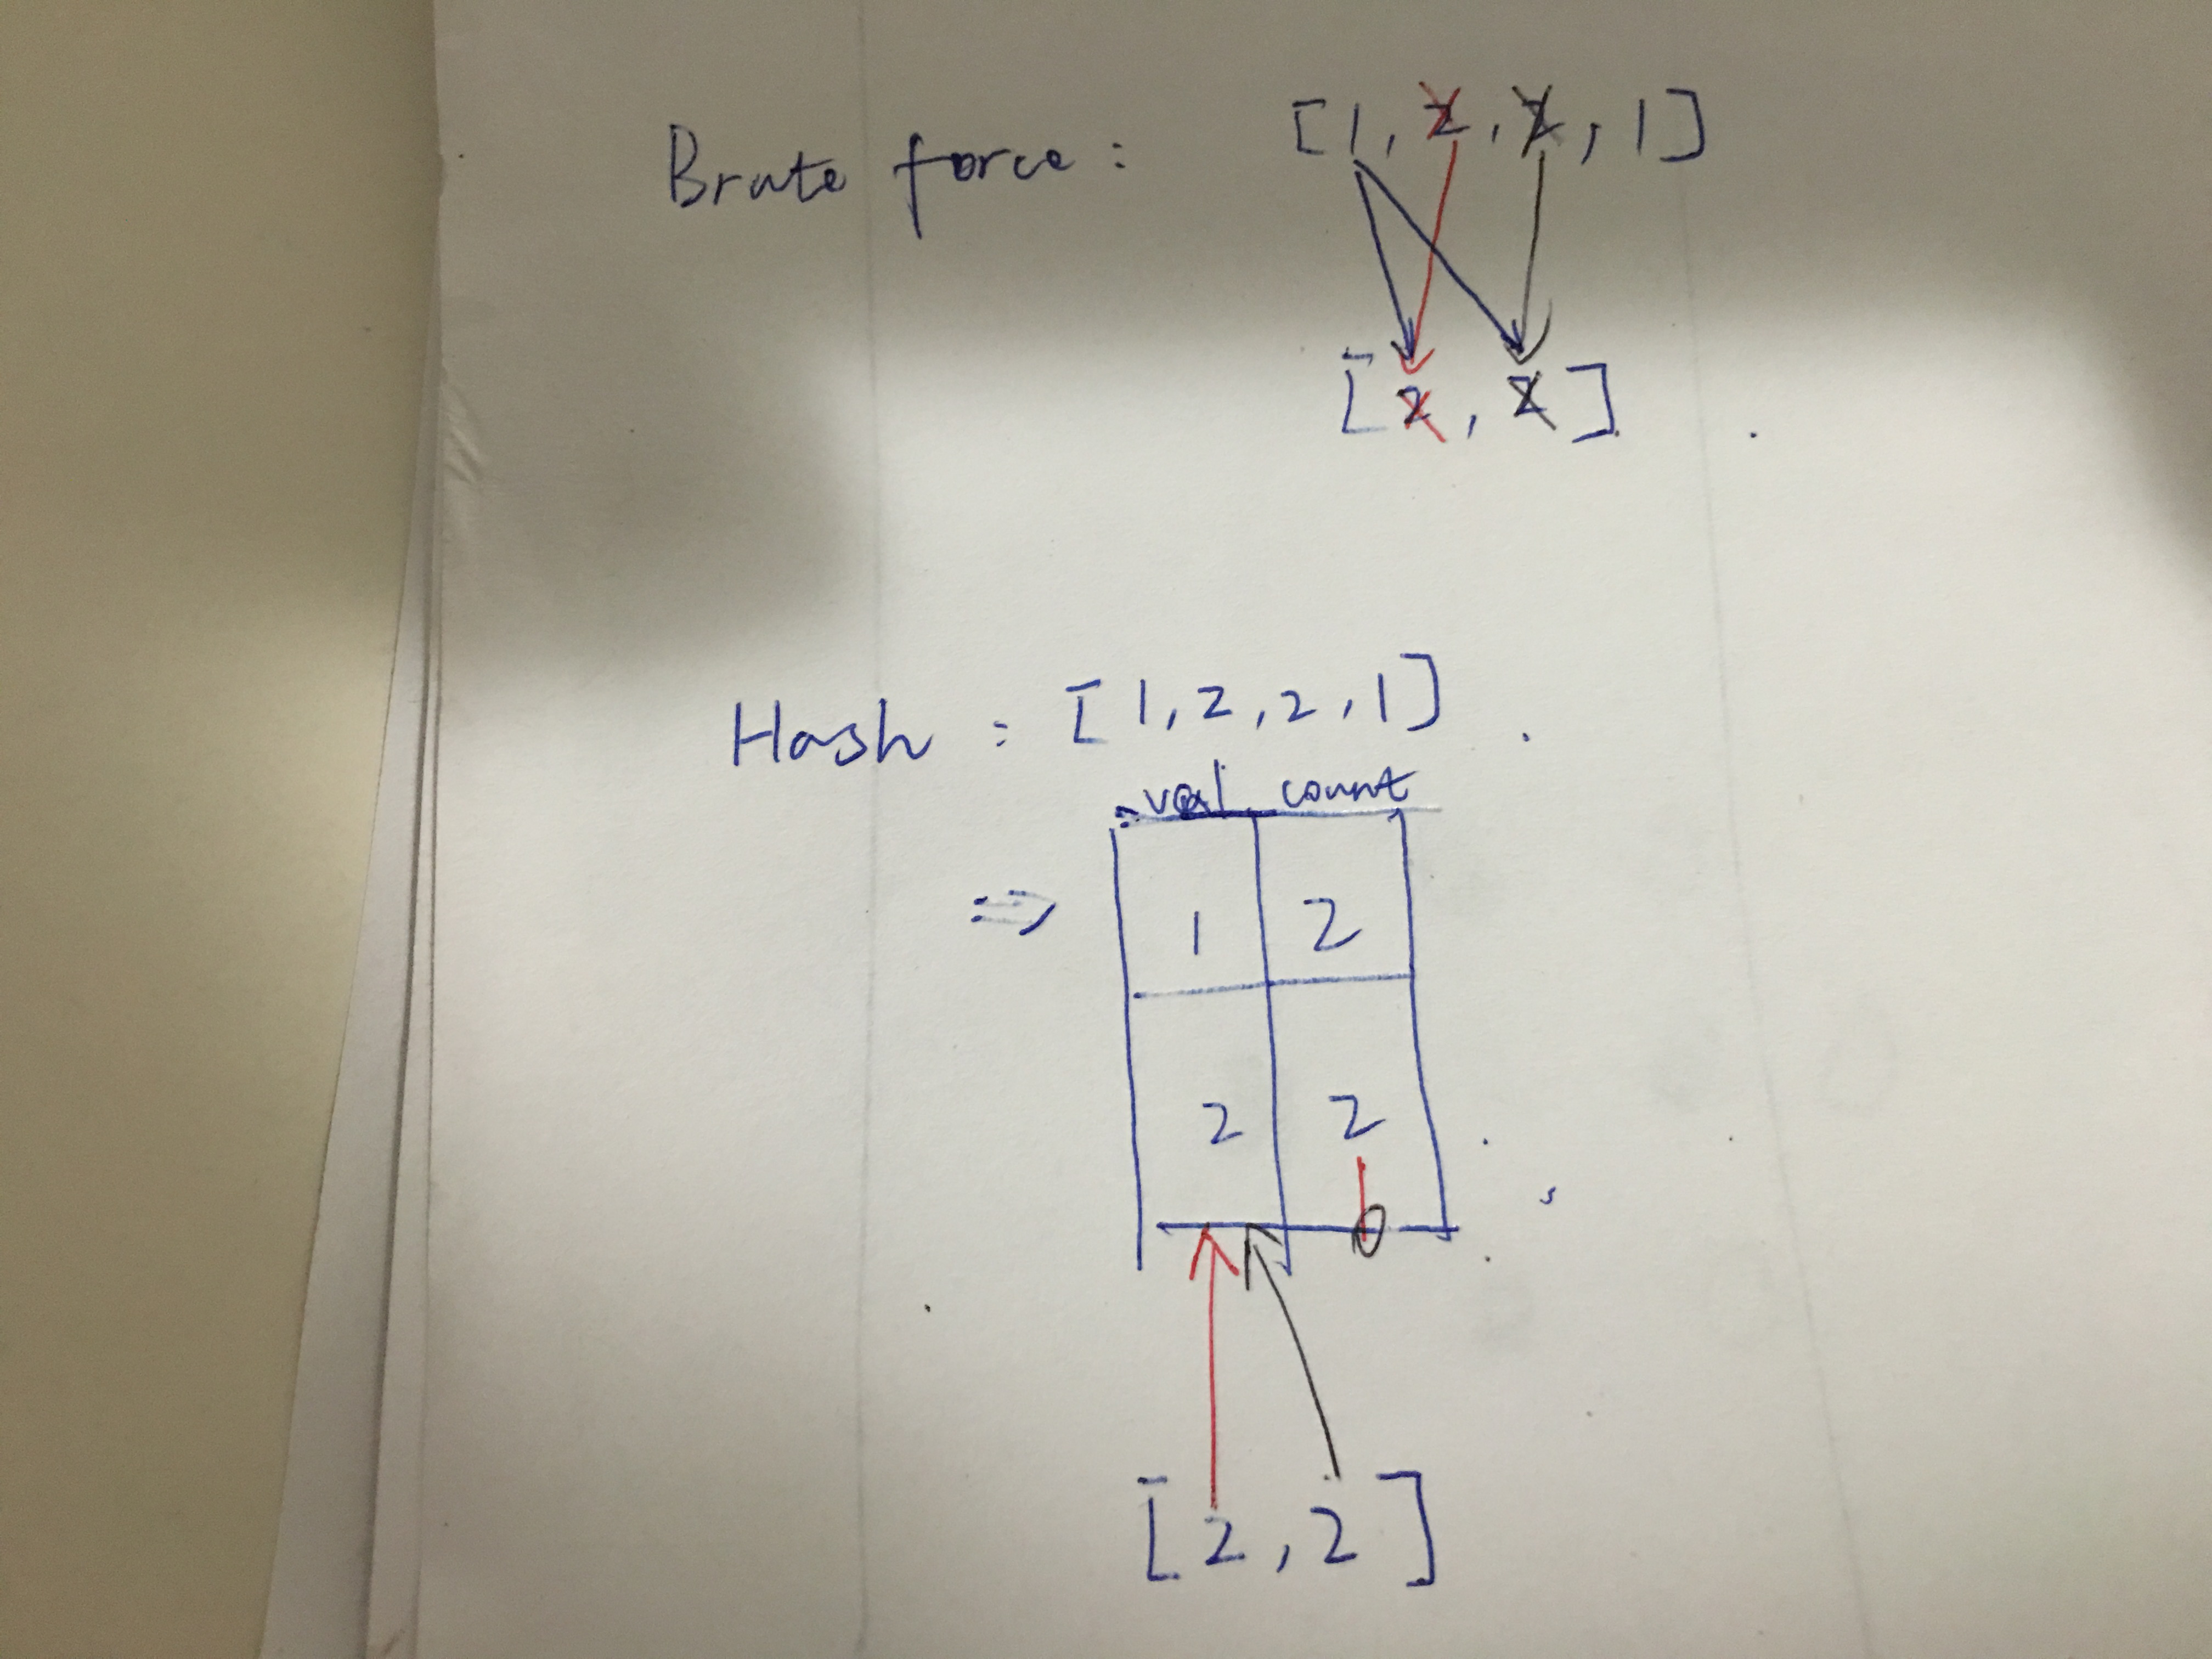 Brute force : [1, 2, 2, 1]
[2, 2]
Hash : [1, 2, 2, 1]
⇒ val count
1 2
2 2
1
0
[2, 2]